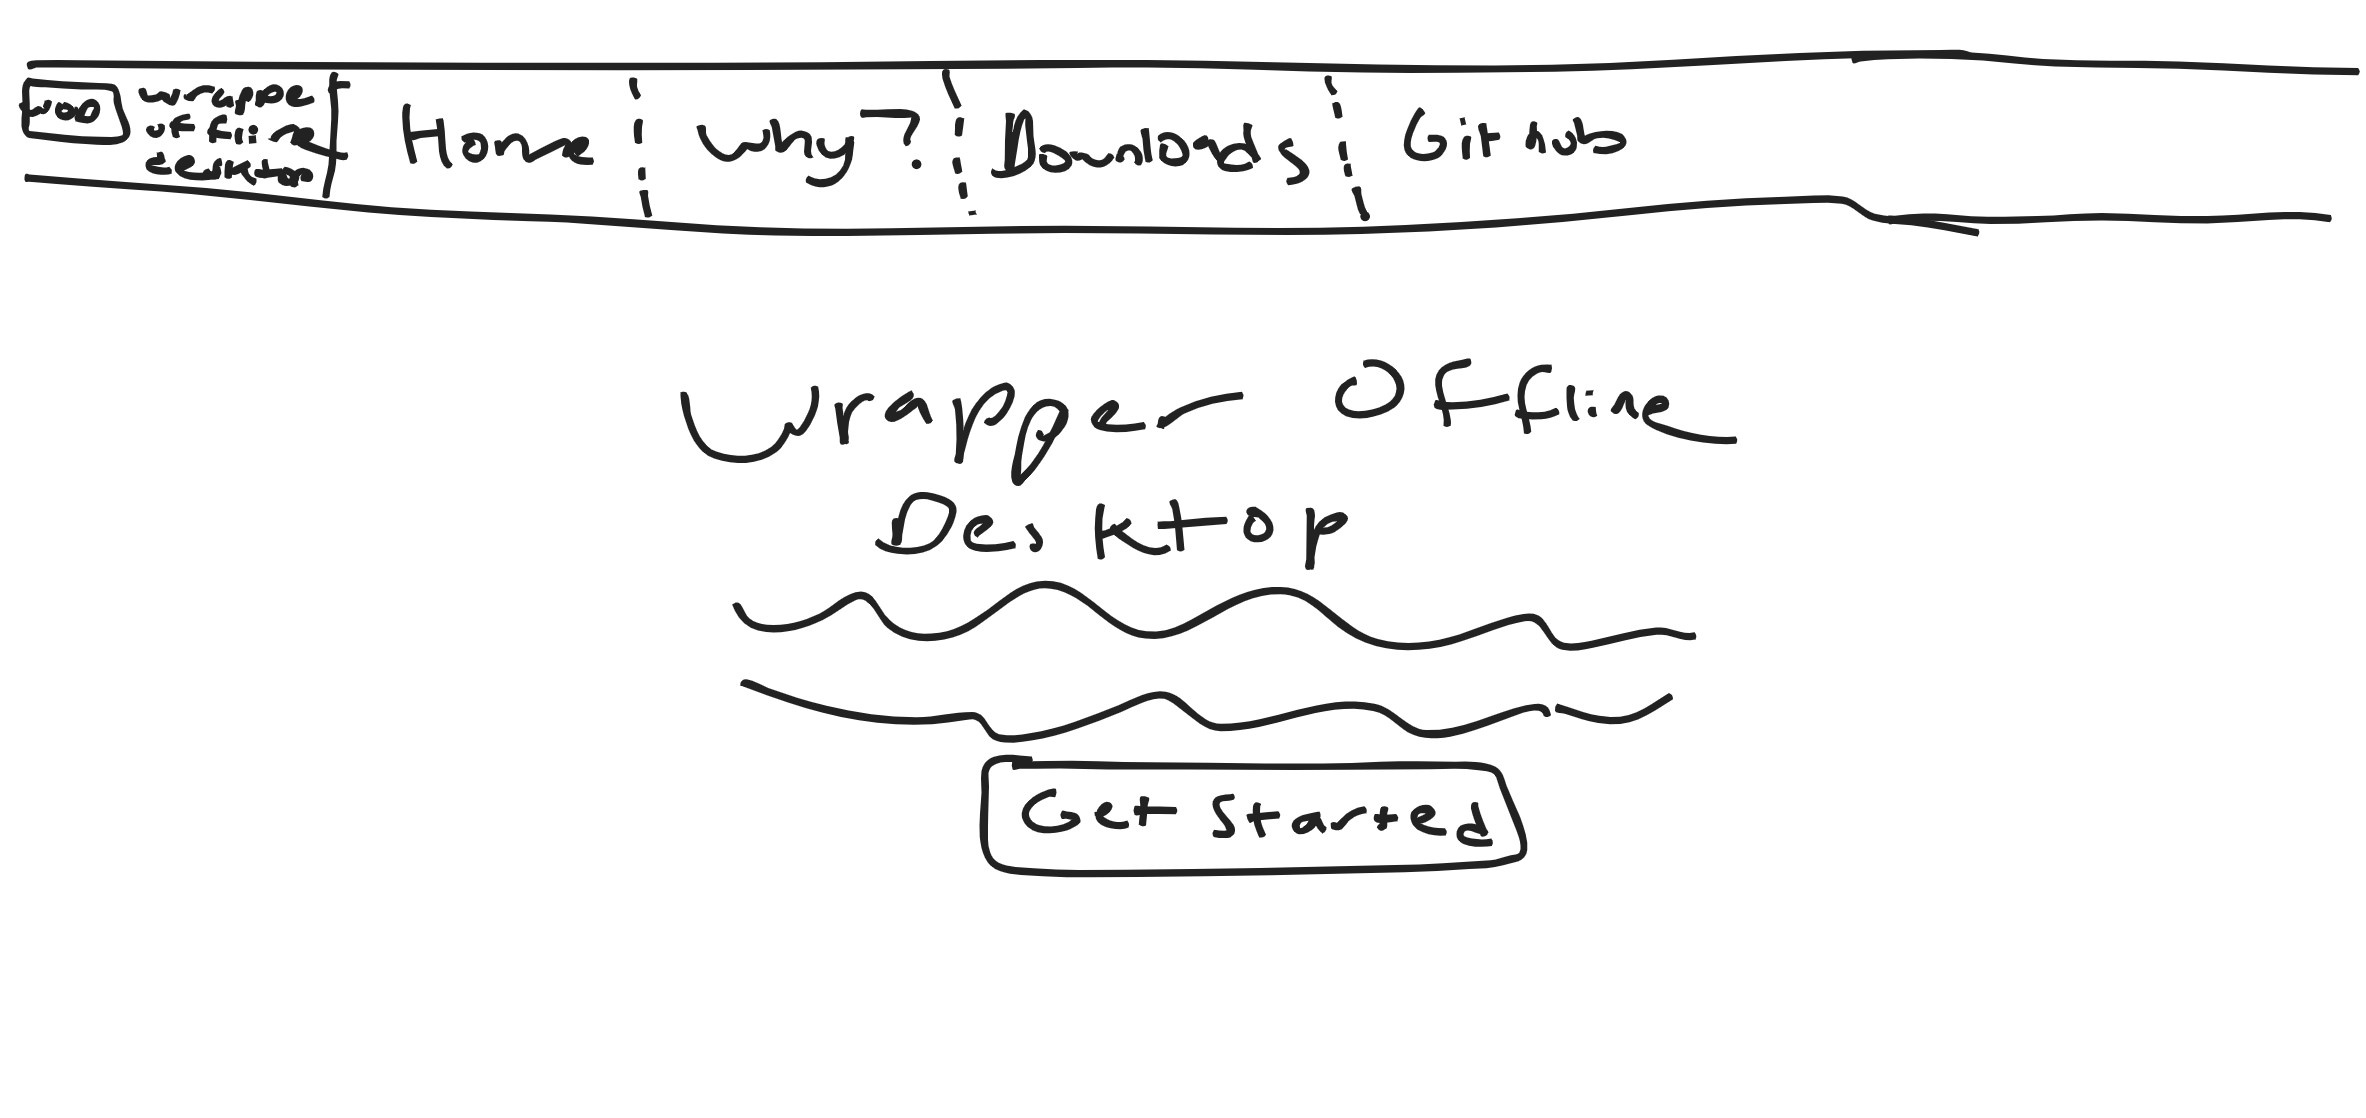 WOD
wrapper
offline
desktop
Home
Why?
Downloads
GitHub
Wrapper Offline
Desktop
Get Started